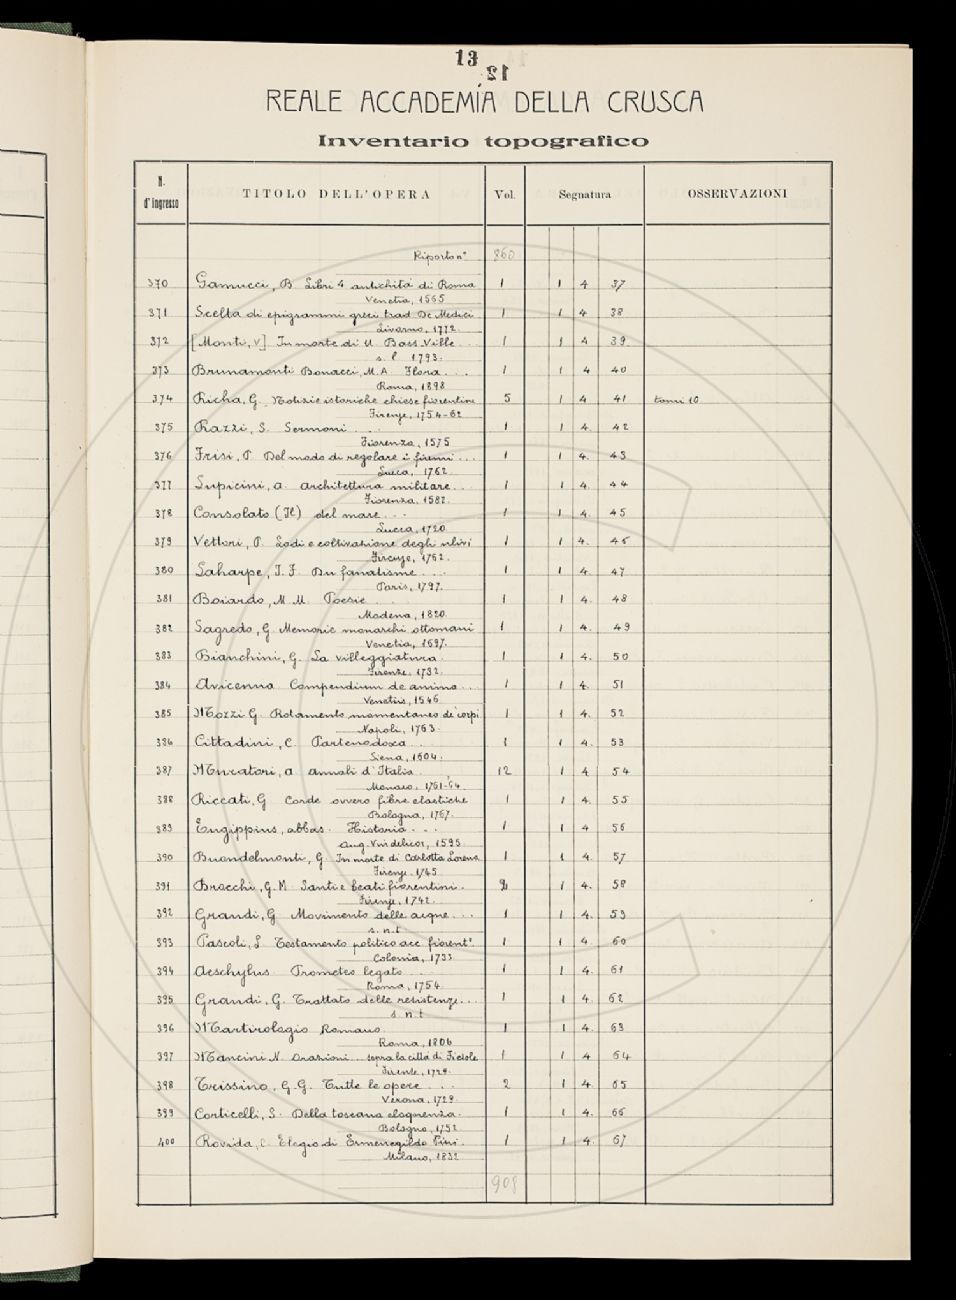 13
12
REALE ACCADEMIA DELLA CRUSCA
Inventario topografico
N. d'ingresso TITOLO DELL'OPERA Vol. Segnatura OSSERVAZIONI
Riporto n° 860
370 Gamucci, B. Libri 4 antichità di Roma 1 1 4 37
Venetia, 1565
371 Scelta di epigrammi greci trad. De Medici 1 1 4 38
Livorno, 1772.
372 [Monti, V] In morte di U. Bass Ville ... 1 1 4 39
s. l. 1793.
373 Brunamonti Bonacci, M. A. Flora ... 1 1 4 40
Roma, 1898
374 Richa, G. Notizie istoriche chiese fiorentine 5 1 4 41 tomi 10
Firenze, 1754-62
375 Razzi, S. Sermoni ... 1 1 4. 42
Fiorenza, 1575
376 Frisi, P. Del modo di regolare i fiumi ... 1 1 4. 43
Lucca, 1762.
377 Lupicini, A. Architettura militare ... 1 1 4. 44
Fiorenza, 1582.
378 Consolato (Il) del mare ... 1 1 4. 45
Lucca, 1720
379 Vettori, P. Lodi e coltivazione degli ulivi 1 1 4. 46
Firenze, 1762.
380 Laharpe, J. F. Du fanatisme ... 1 1 4. 47
Paris, 1797.
381 Boiardo, M. M. Poesie 1 1 4. 48
Modena, 1820.
382 Sagredo, G. Memorie monarchi ottomani 1 1 4. 49
Venetia, 1697.
383 Bianchini, G. La villeggiatura. 1 1 4. 50
Firenze, 1732.
384 Avicenna Compendium de anima ... 1 1 4. 51
Venetiis, 1546
385 Mozzi G. Rotamento momentaneo de' corpi 1 1 4. 52
Napoli, 1763.
386 Cittadini, C. Partenodoxa 1 1 4. 53
Siena, 1604.
387 Muratori, A. Annali d'Italia 12 1 4 54
Monaco, 1761-64
388 Riccati, G. Corde ovvero fibre elastiche 1 1 4. 55
Bologna, 1767.
389 Eugippius, abbas. Historia ... 1 1 4 56
Aug. Vindelicor, 1595
390 Buondelmonti, G. In morte di Carlotta Lorena 1 1 4. 57
Firenze, 1745
391 Brocchi, G. M. Santi e beati fiorentini. 1 4. 58
Firenze, 1742.
392 Grandi, G. Movimento delle acque ... 1 1 4. 59
s. n. t.
393 Pascoli, L. Testamento politico acc. fiorent° 1 1 4. 60
Colonia, 1733
394 Aeschylus. Prometeo legato ... 1 1 4. 61
Roma, 1754.
395 Grandi, G. Trattato delle resistenze ... 1 1 4. 62
s. n. t
396 Martirologio Romano. 1 1 4. 63
Roma, 1806
397 Mancini N. Orazioni ... sopra la città di Fiesole 1 1 4 64
Firenze, 1729.
398 Trissino, G. G. Tutte le opere ... 2 1 4. 65
Verona, 1729.
399 Corticelli, S. Della toscana eloquenza. 1 1 4. 66
Bologna, 1752
400 Rovida, C. Elogio di Ermenegildo Pini. 1 1 4. 67
Milano, 1832
908